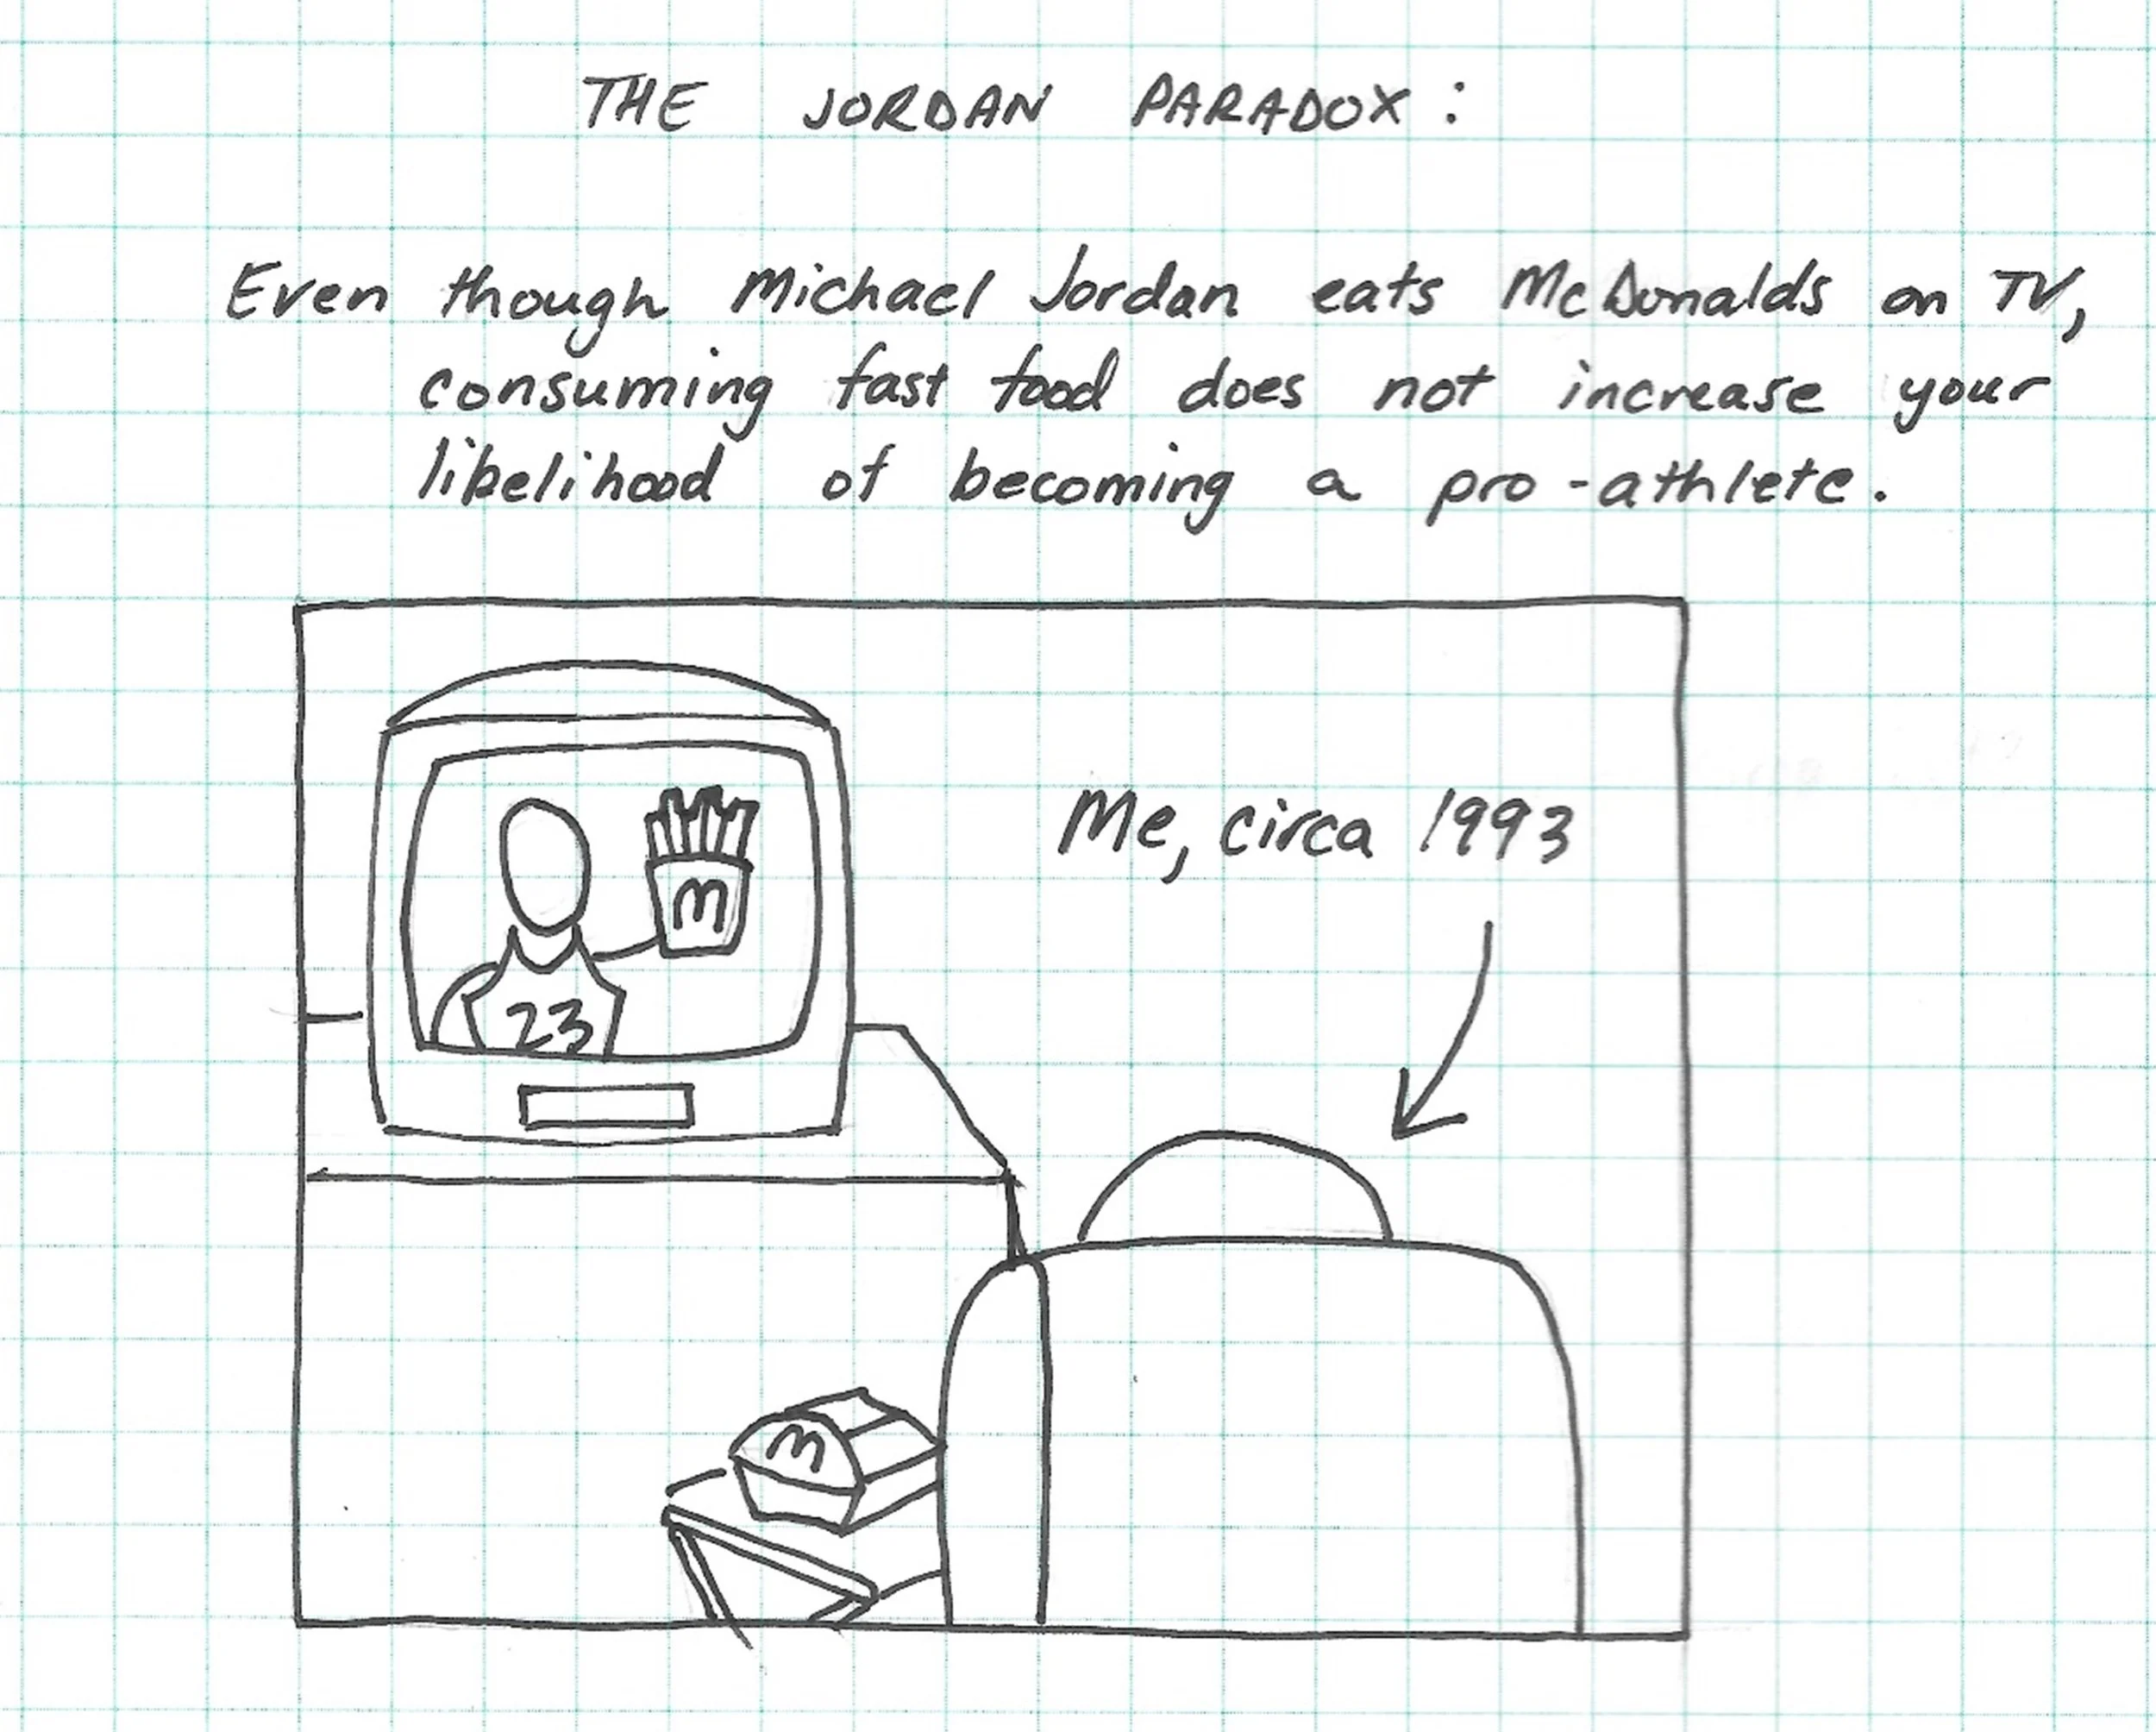 THE JORDAN PARADOX:
Even though Michael Jordan eats McDonalds on TV,
consuming fast food does not increase your
likelihood of becoming a pro-athlete.
M
23
Me, circa 1993
M